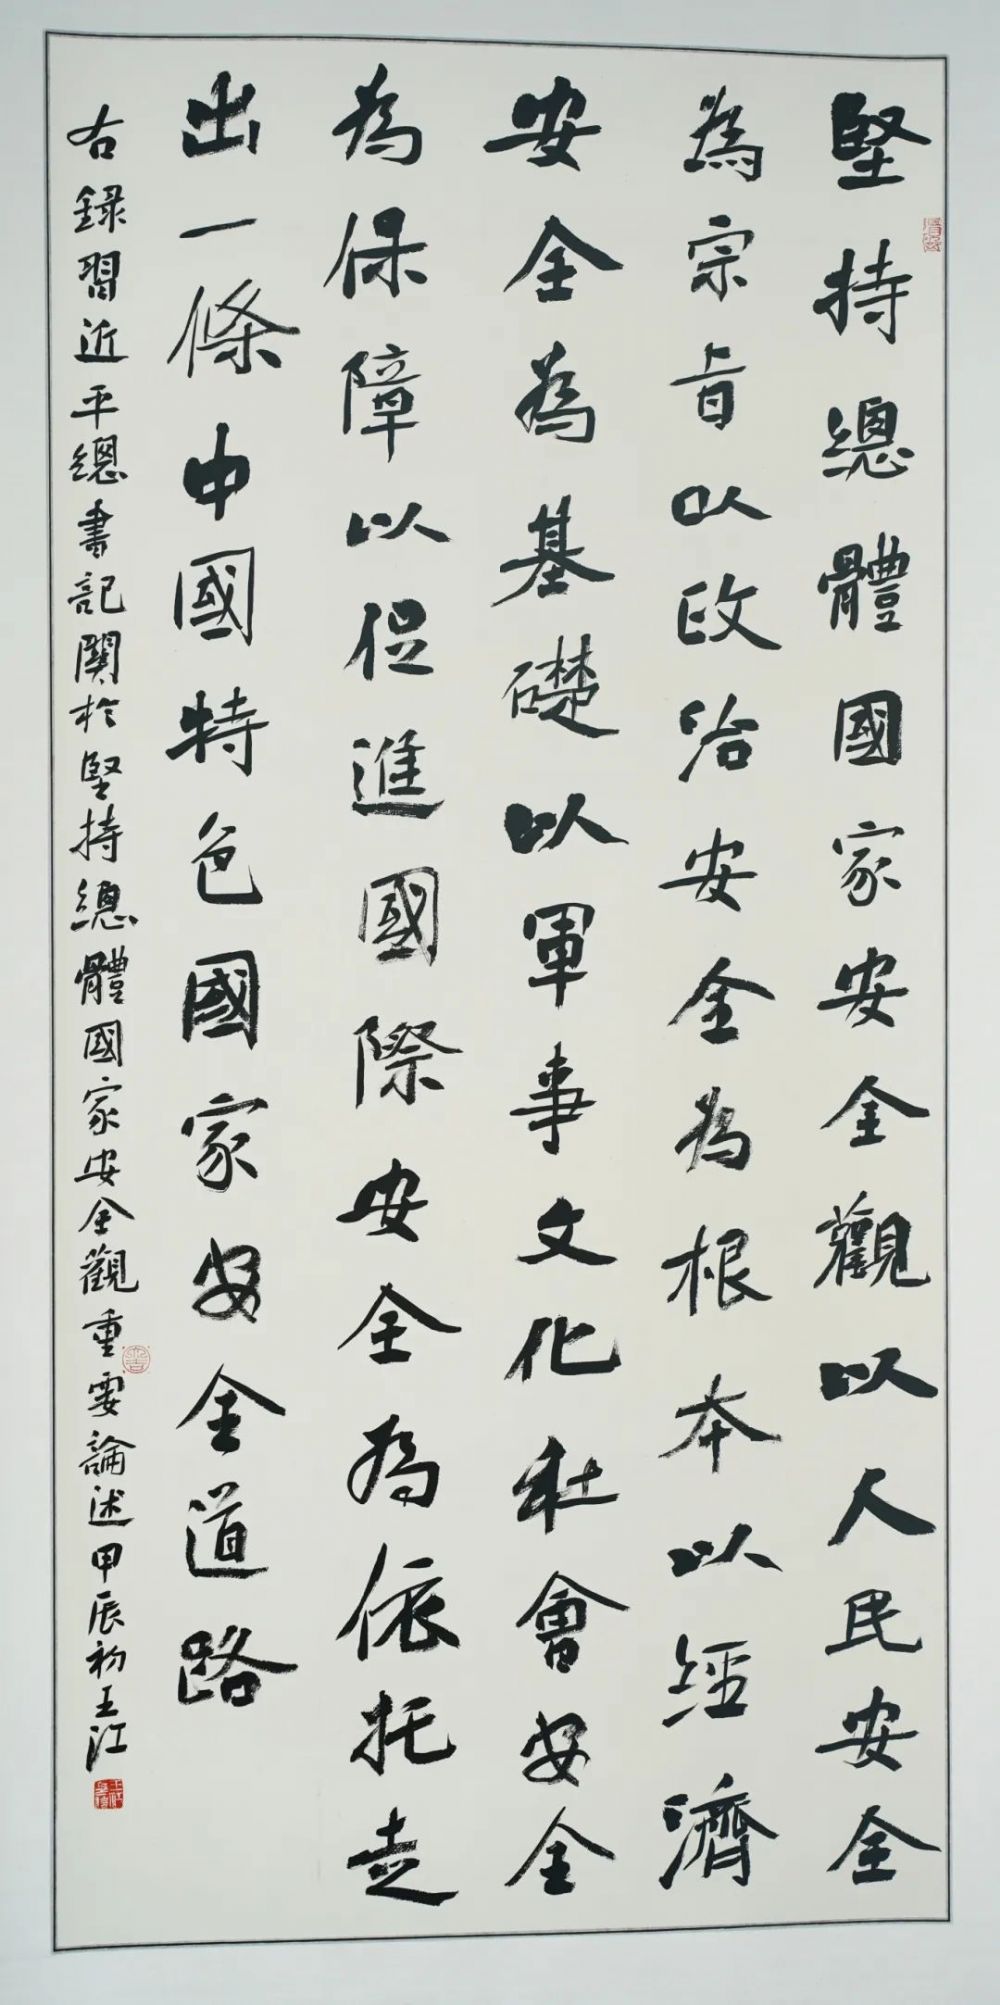 堅持總體國家安全觀以人民安全
為宗旨以政治安全為根本以經濟
安全為基礎以軍事文化社會安全
為保障以促進國際安全為依托走
出一條中國特色國家安全道路
右錄習近平總書記關於堅持總體國家安全觀重要論述甲辰初王江